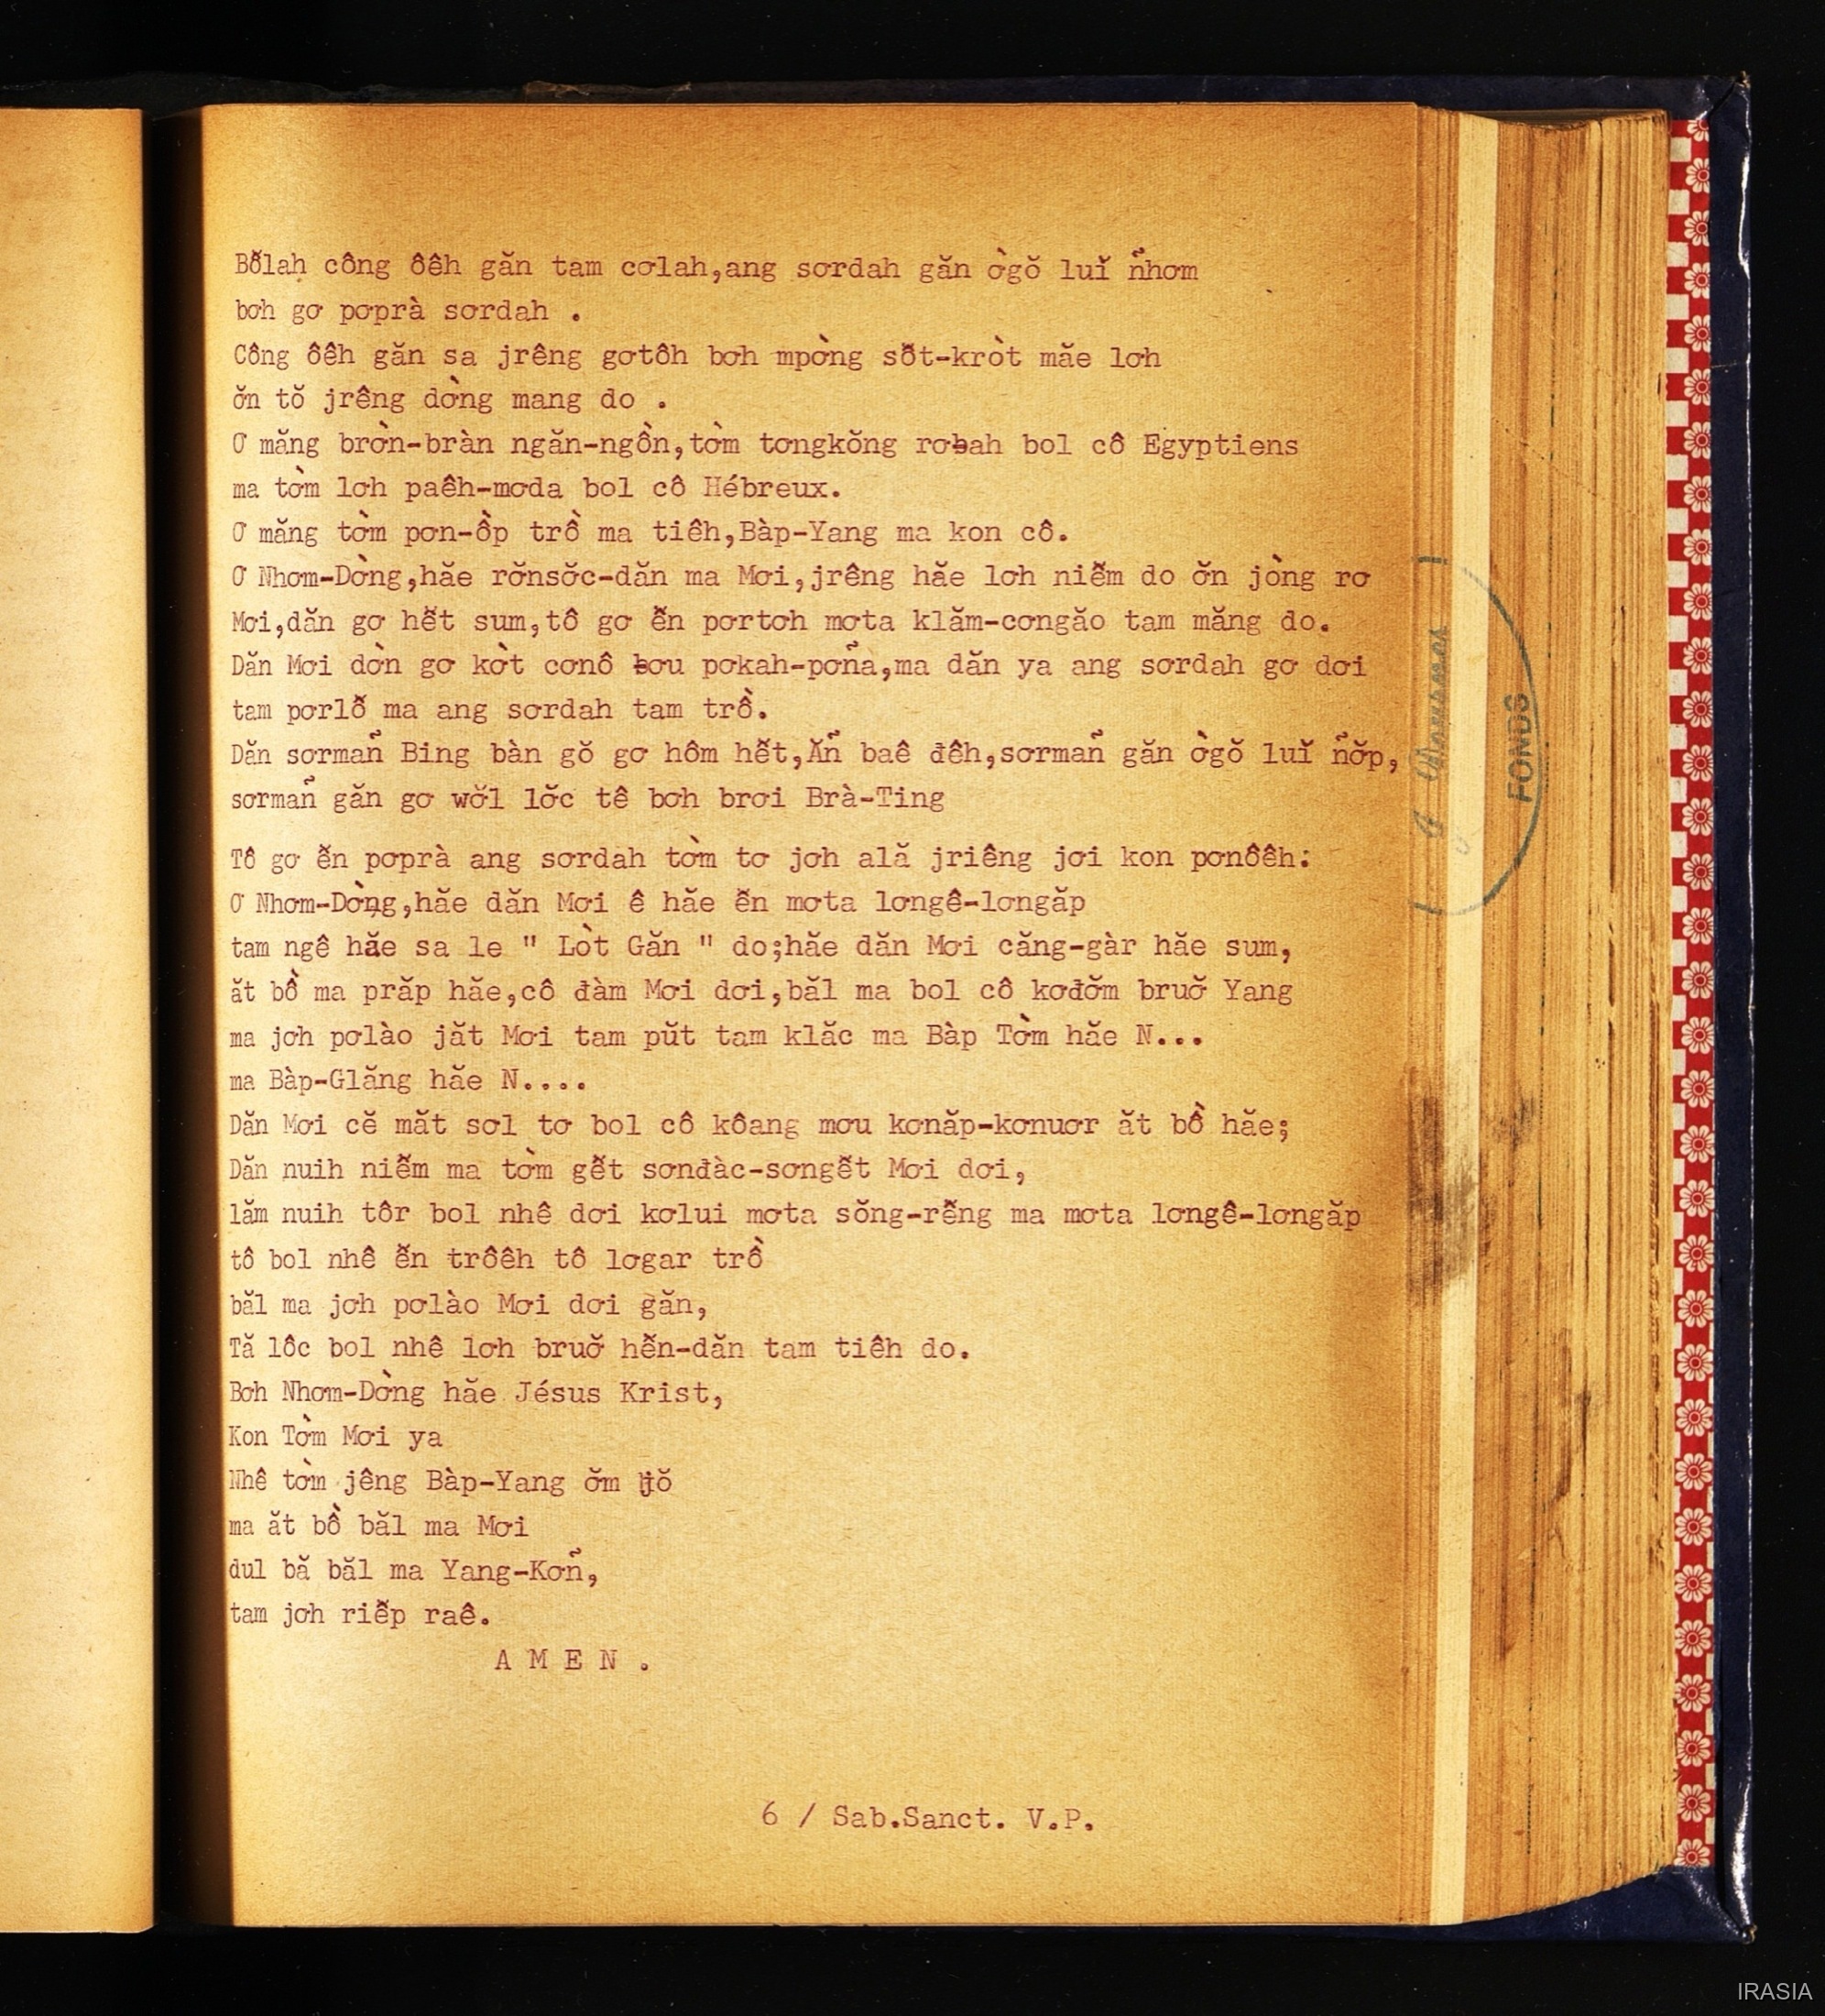 Bô̆lah công ôêh găn tam cơlah,ang sơrdah găn ờgŏ luĭ ñhơm
bơh gơ pơprà sơrdah .
Công ôêh găn sa jrêng gơtôh bơh mpờng sô̆t-kròt măe lơh
ơ̆n tŏ jrêng dờng mang do .
Ơ măng bròn-bràn ngăn-ngồn,tờm tơngkŏng rơƀah bol cô Egyptiens
ma tờm lơh paêh-mơda bol cô Hébreux.
Ơ măng tờm pơn-ồp trồ ma tiêh,Bàp-Yang ma kon cô.
Ơ Nhơm-Dờng,hăe rơ̆nsơ̆c-dăn ma Mơi,jrêng hăe lơh niê̆m do ơ̆n jòng rơ
Mơi,dăn gơ hê̆t sum,tô gơ ê̆n pơrtơh mơta klăm-cơngăo tam măng do.
Dăn Mơi dờn gơ kờt cơnô ƀơu pơkah-pơña,ma dăn ya ang sơrdah gơ dơi
tam pơrlô̆ ma ang sơrdah tam trồ.
Dăn sơrmañ Bing bàn gŏ gơ hôm hê̆t,Ăñ baê đêh,sơrmañ găn ờgŏ luĭ ñơ̆p,
sơrmañ găn gơ wơ̆l lơ̆c tê bơh brơi Brà-Ting
Tô gơ ê̆n pơprà ang sơrdah tờm tơ jơh ală jriêng jơi kon pơnôêh:
Ơ Nhơm-Dờng,hăe dăn Mơi ê hăe ê̆n mơta lơngê-lơngăp
tam ngê hăe sa le " Lòt Găn " do;hăe dăn Mơi căng-gàr hăe sum,
ăt bồ ma prăp hăe,cô đàm Mơi dơi,băl ma bol cô kơđơ̆m bruơ̆ Yang
ma jơh pơlào jăt Mơi tam pŭt tam klăc ma Bàp Tờm hăe N...
ma Bàp-Glăng hăe N....
Dăn Mơi cĕ măt sơl tơ bol cô kôang mơu kơnăp-kơnuơr ăt bồ hăe;
Dăn nuih niê̆m ma tờm gê̆t sơnđàc-sơngê̆t Mơi dơi,
lăm nuih tôr bol nhê dơi kơlui mơta sŏng-rê̆ng ma mơta lơngê-lơngăp
tô bol nhê ê̆n trôêh tô lơgar trồ
băl ma jơh pơlào Mơi dơi găn,
Tă lôc bol nhê lơh bruơ̆ hê̆n-dăn tam tiêh do.
Bơh Nhơm-Dờng hăe Jésus Krist,
Kon Tờm Mơi ya
Nhê tờm jêng Bàp-Yang ơ̆m tŏ
ma ăt bồ băl ma Mơi
dul bă băl ma Yang-Kơñ,
tam jơh riê̆p raê.
A M E N .
6 / Sab.Sanct. V.P.
FONDS
IRASIA